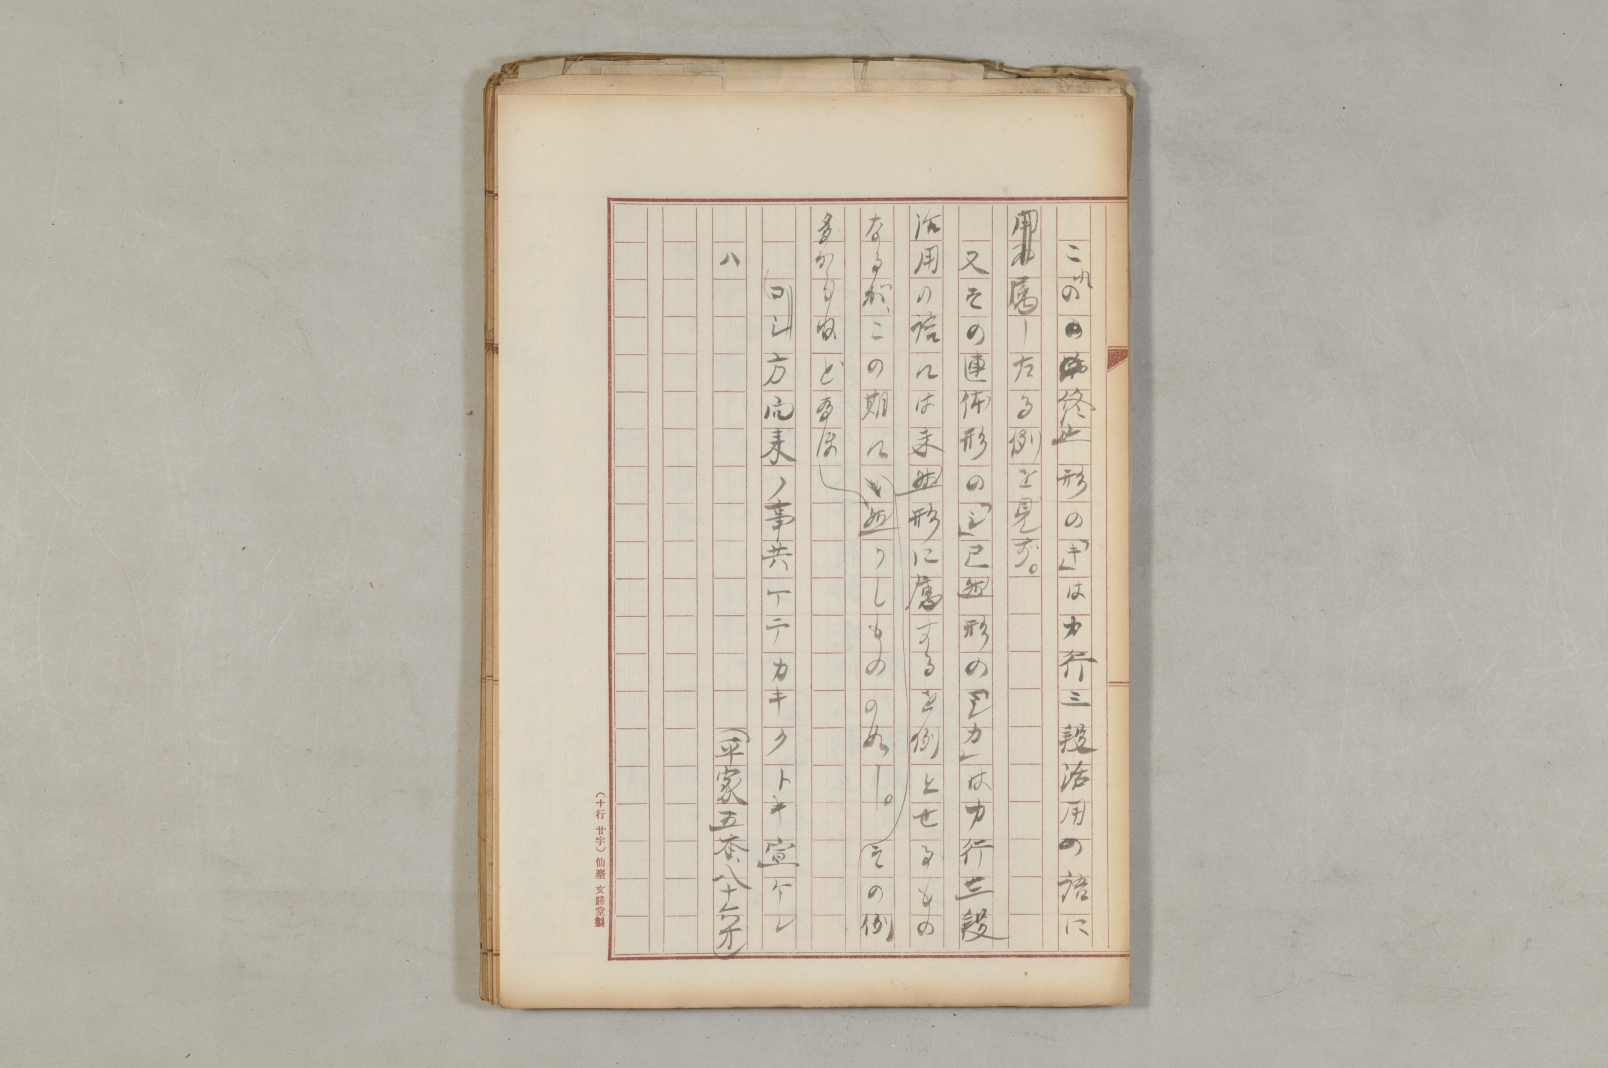 これの終止形の「キ」はカ行三段活用の語に
用ゐ属したる例を見す。
又その連体形の「シ」已然形の「シカ」はカ行三段
活用の語には未然形に属するを例とせるもの
なるが、この期には然りしもののぬし。その例
多からねどなほ
コシ方向来ノ事共
カキクトキ宣ケレ
ハ
(平家五本、八十六オ)
(十行 廿字) 仙臺 文勝堂製